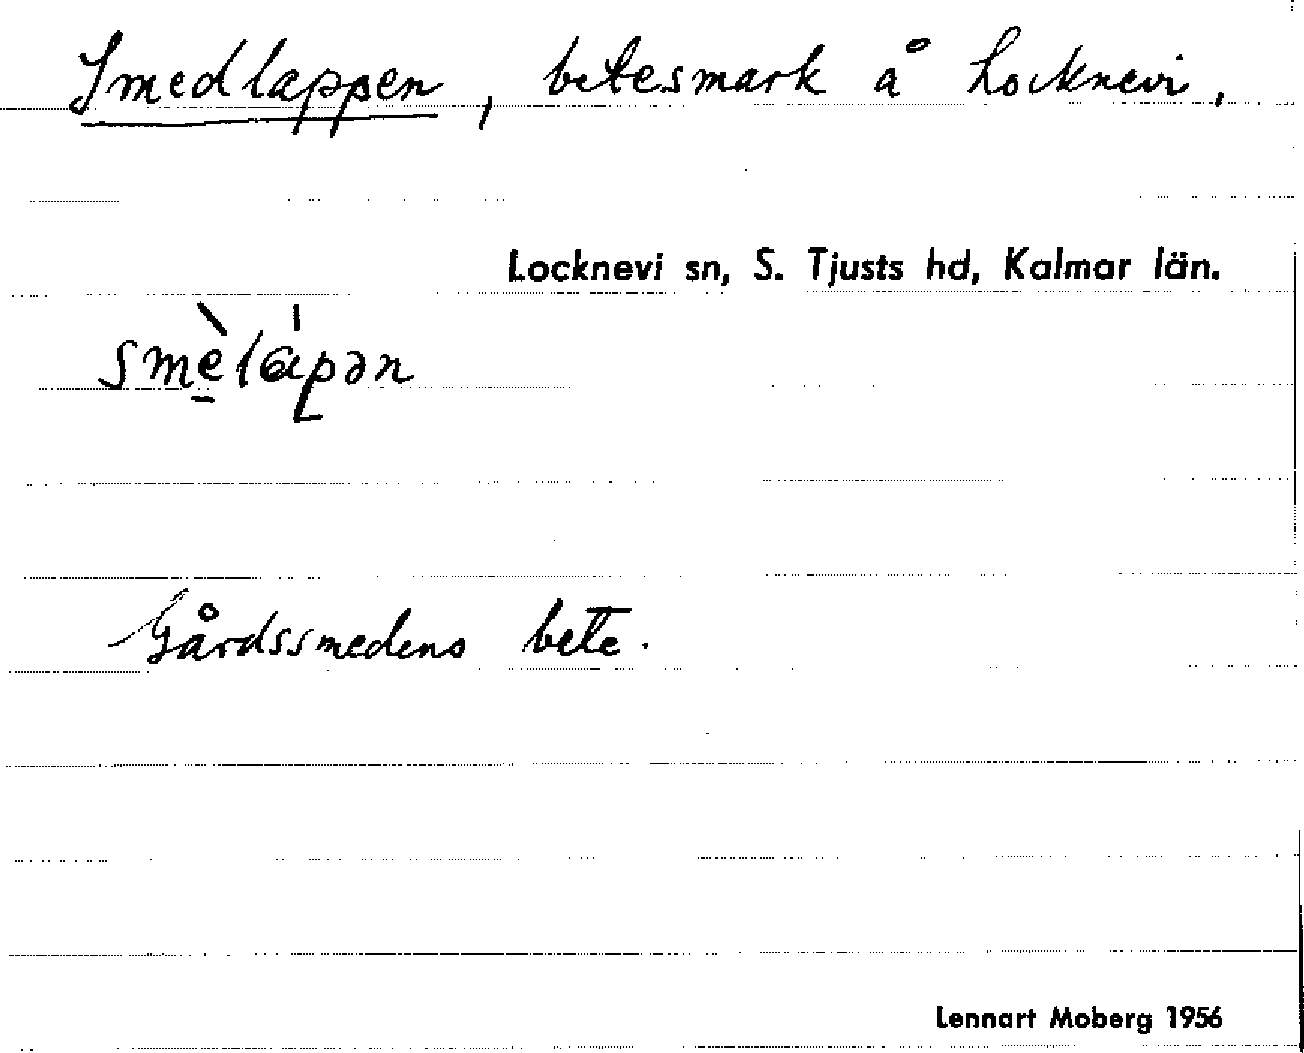 Smedlappen, betesmark å Locknevi.
Locknevi sn, S. Tjusts hd, Kalmar län.
smè̱lápən
Gårdssmedens bete.
Lennart Moberg 1956